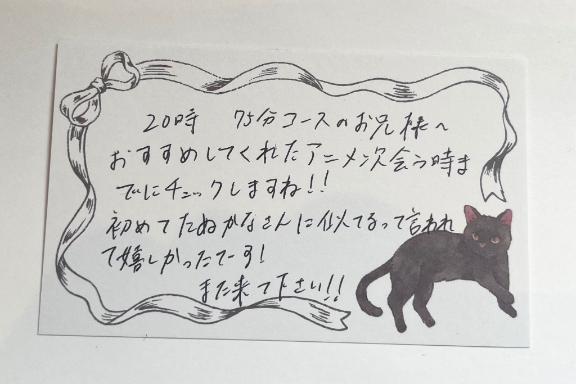 20時 75分コースのお兄様へ
おすすめしてくれたアニメ次会う時ま
でにチェックしますね!!
初めてたぬかなさんに似てるって言われ
て嬉しかったでーす!
また来て下さい!!